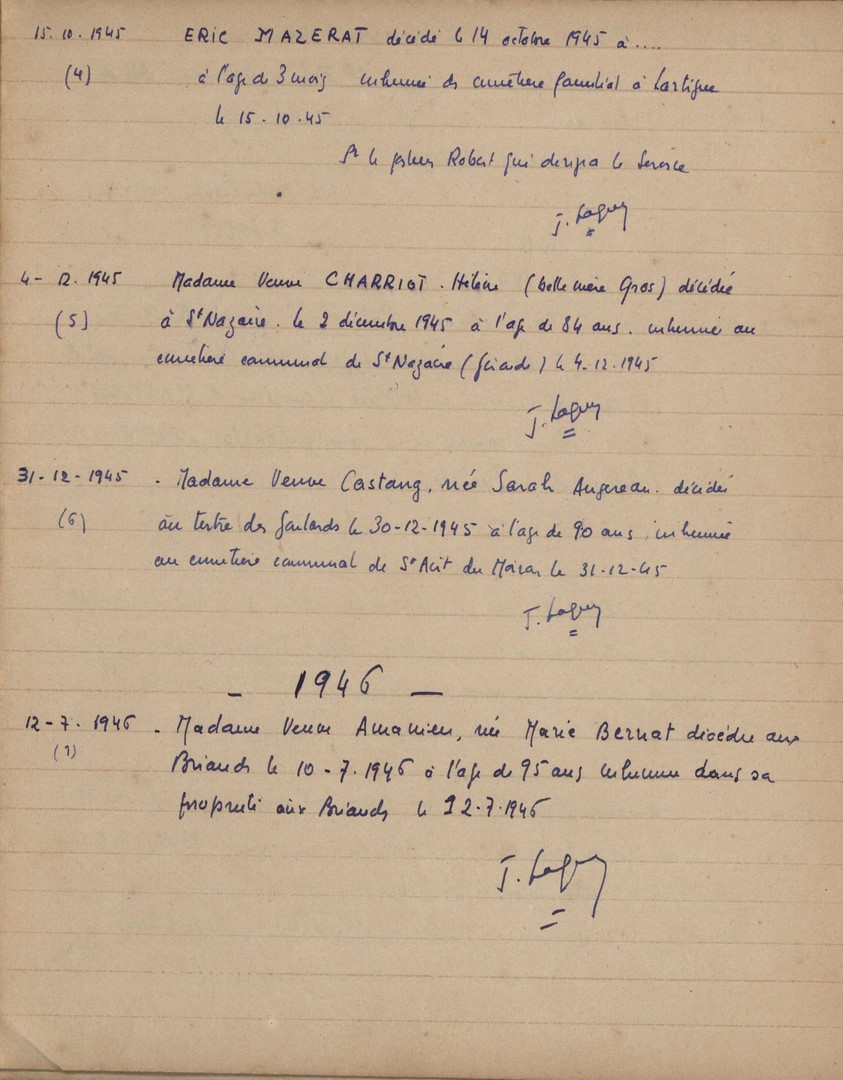 15.10.1945 ERIC MAZERAT décédé le 14 octobre 1945 à ....
(4) à l'age de 3 mois inhumé ds cimetière familial à Lartigue
le 15-10-45
Pr le pasteur Robert qui dirigea le Service
J. Laguy
4-12.1945 Madame Veuve CHARRIOT. Hélène (belle mère Gros) décédée
(5) à St Nazaire. le 2 décembre 1945 à l'age de 84 ans. inhumée au
cimetière communal de St Nazaire (Gironde) le 4-12.1945
J. Laguy
31-12-1945 - Madame Veuve Castang, née Sarah Augereau. décédée
(6) au tertre des Gaulards le 30-12-1945 à l'age de 90 ans, inhumée
au cimetière communal de St Avit du Moiron le 31-12-45
J. Laguy
- 1946 -
12-7.1946 - Madame Veuve Amanieu, née Marie Bernat décédée aux
(1) Briands le 10-7.1946 à l'age de 95 ans inhumée dans sa
propriété aux Briands le 12-7.1946
J. Laguy